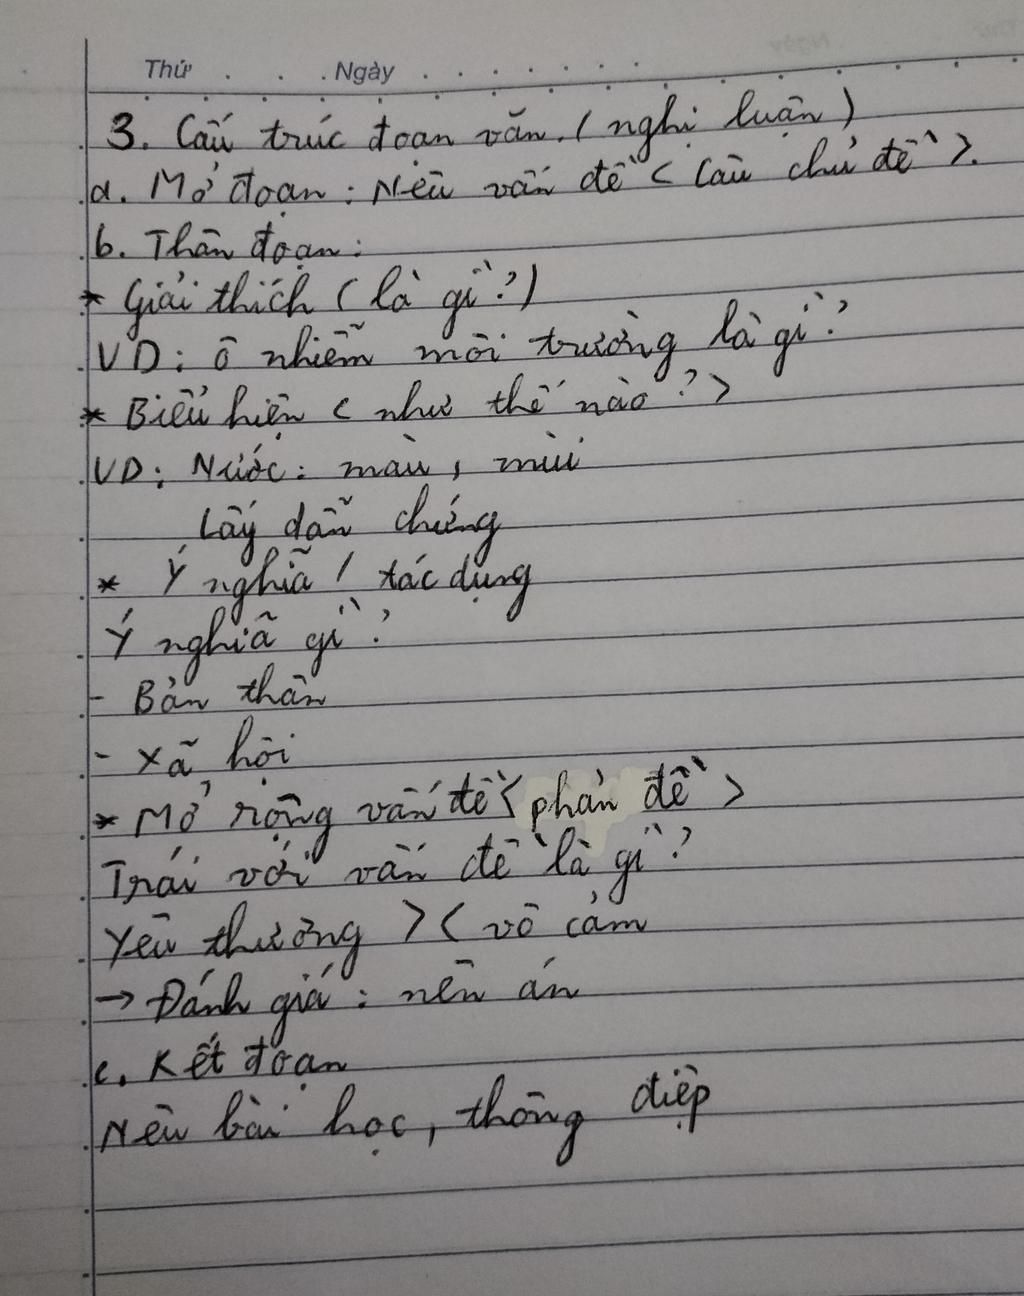 Thứ . . . Ngày . . . . . . .
3. Cấu trúc đoạn văn. (nghị luận)
a. Mở đoạn: Nêu vấn đề < câu chủ đề >.
b. Thân đoạn:
* Giải thích (là gì?)
VD: ô nhiễm môi trường là gì?
* Biểu hiện < như thế nào? >
VD: Nước: màu, mùi
Lấy dẫn chứng
* Ý nghĩa / tác dụng
Ý nghĩa gì?
- Bản thân
- Xã hội
* Mở rộng vấn đề < phản đề >
Trái với vấn đề là gì?
Yêu thương >< vô cảm
→ Đánh giá: nên án
c. Kết đoạn
Nêu bài học, thông điệp